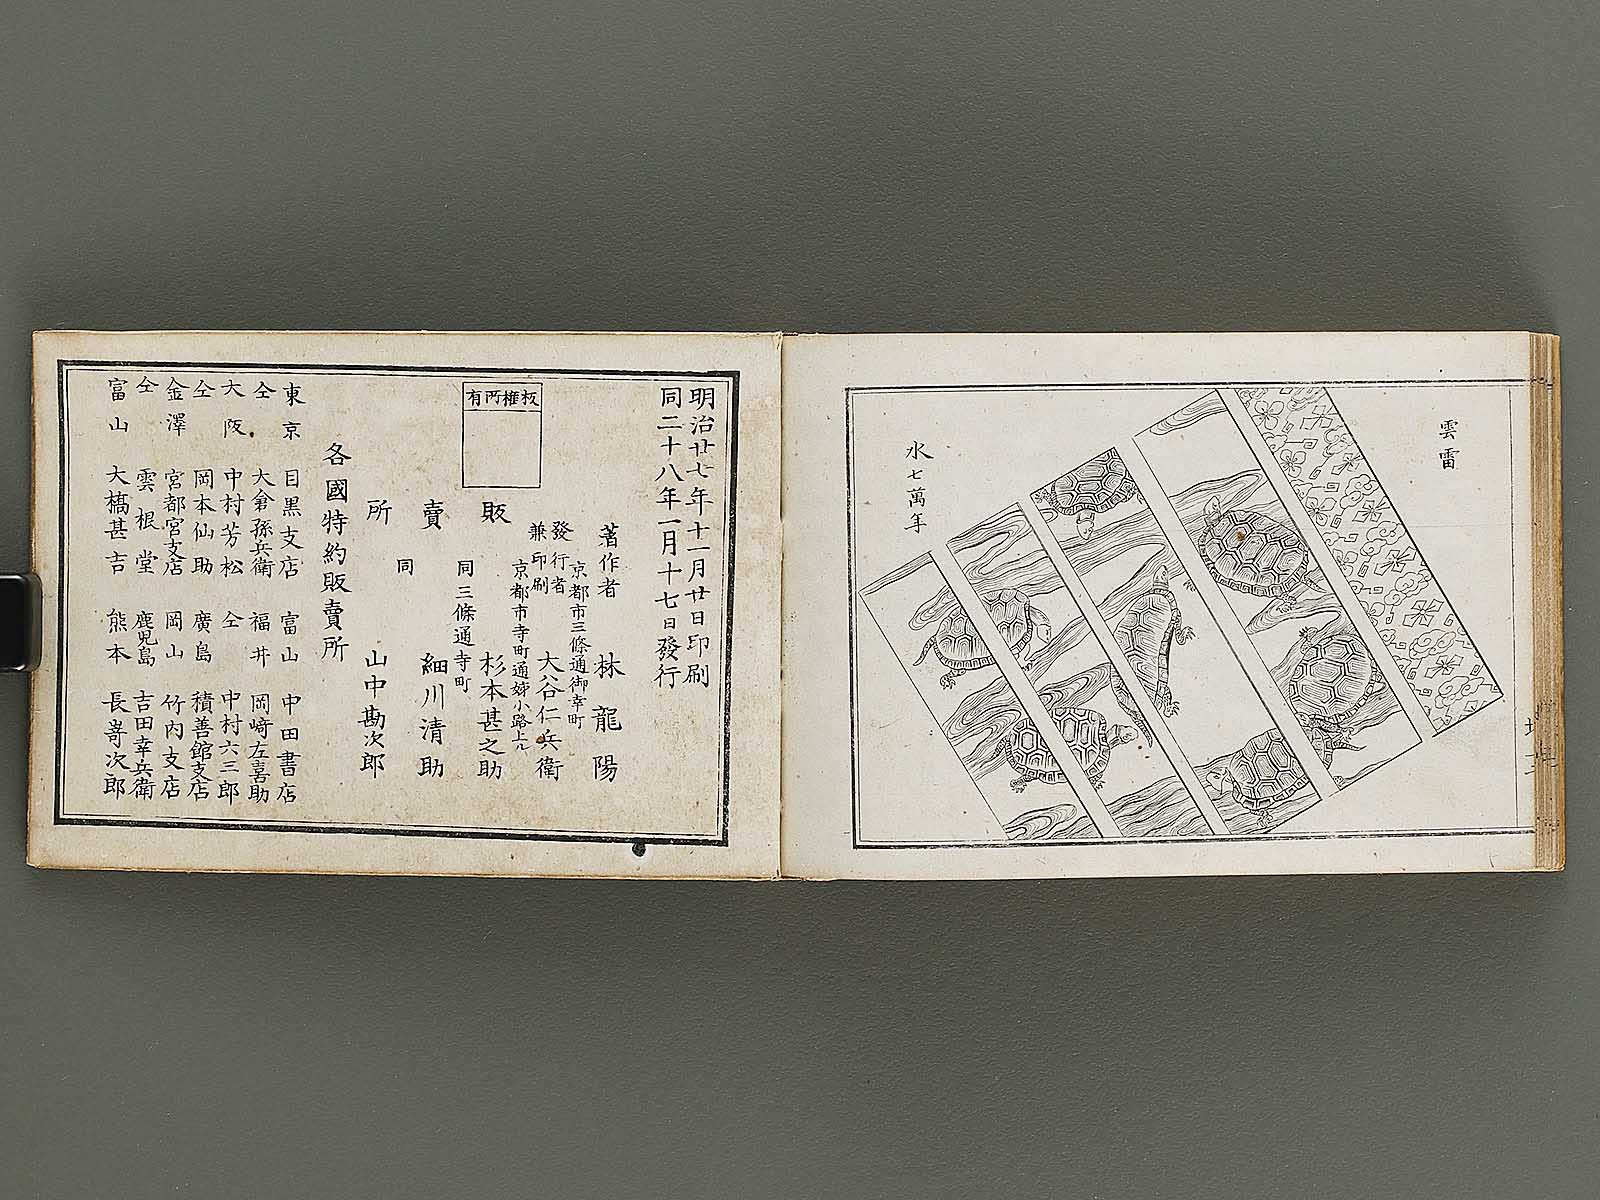 雲雷
水七萬年
明治廿七年十一月廿日印刷
同二十八年一月十七日發行
著作者 林龍陽
京都市三條通御幸町
發行者兼印刷 大谷仁兵衛
京都市寺町通姊小路上ル
版權所有
販賣所 杉本甚之助
同三條通寺町
細川清助
同
山中勘次郎
各國特約販賣所
東京 目黒支店 富山 中田書店
仝 大倉孫兵衛 福井 岡﨑左喜助
大阪 中村芳松 仝 中村六三郎
仝 岡本仙助 廣島 積善館支店
金澤 宮都宮支店 岡山 竹内支店
仝 雲根堂 鹿児島 吉田幸兵衛
富山 大橋甚吉 熊本 長嵜次郎